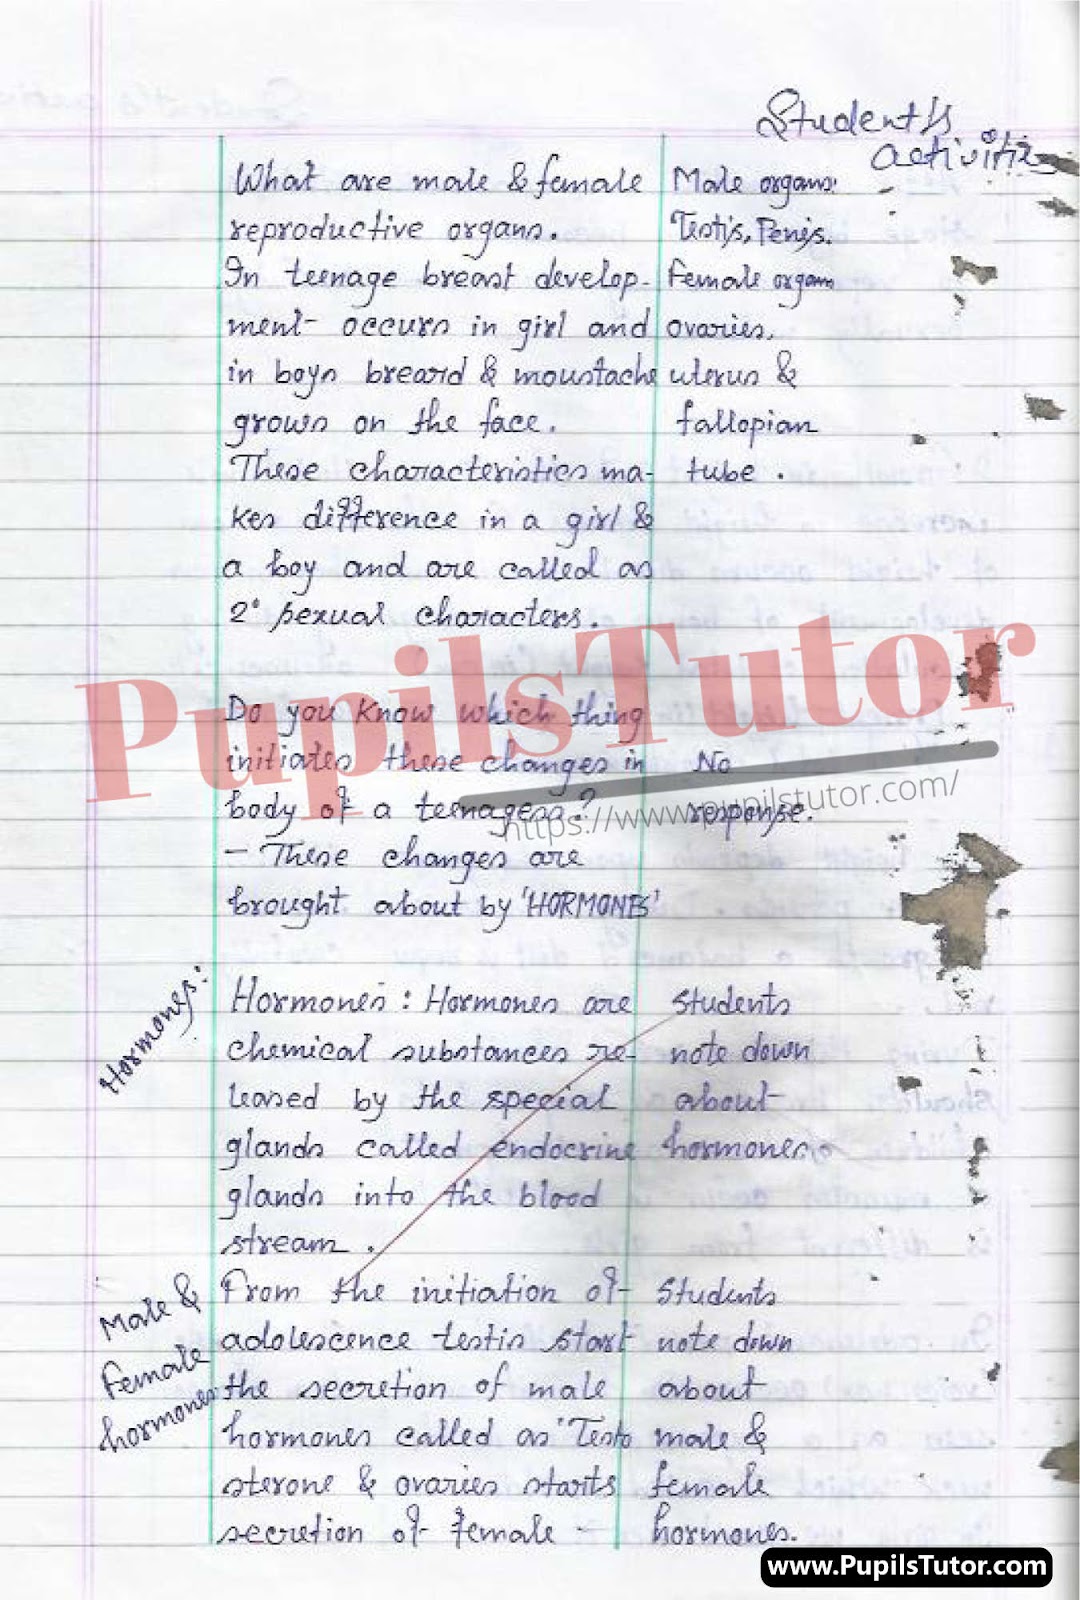 Student's
activities
What are male & female
reproductive organs.
In teenage breast develop-
ment occurs in girl and
in boys breard & moustache
grows on the face.
These characteristics ma-
kes difference in a girl &
a boy and are called as
2° sexual characters.
Male organs:
Testis, Penis.
Female organ
ovaries,
uterus &
fallopian
tube.
PupilsTutor
https://www.pupilstutor.com/
Do you know which thing
initiates these changes in
body of a teenagess?
- These changes are
brought about by 'HORMONES'
No
response.
Hormones:
Hormones: Hormones are
chemical substances re-
leased by the special
glands called endocrine
glands into the blood
stream.
Students
note down
about
hormones.
Male &
Female
hormones
From the initiation of
adolescence testis start
the secretion of male
hormones called as 'Testo
sterone & ovaries starts
secretion of female -
Students
note down
about
male &
female
hormones.
www.PupilsTutor.com